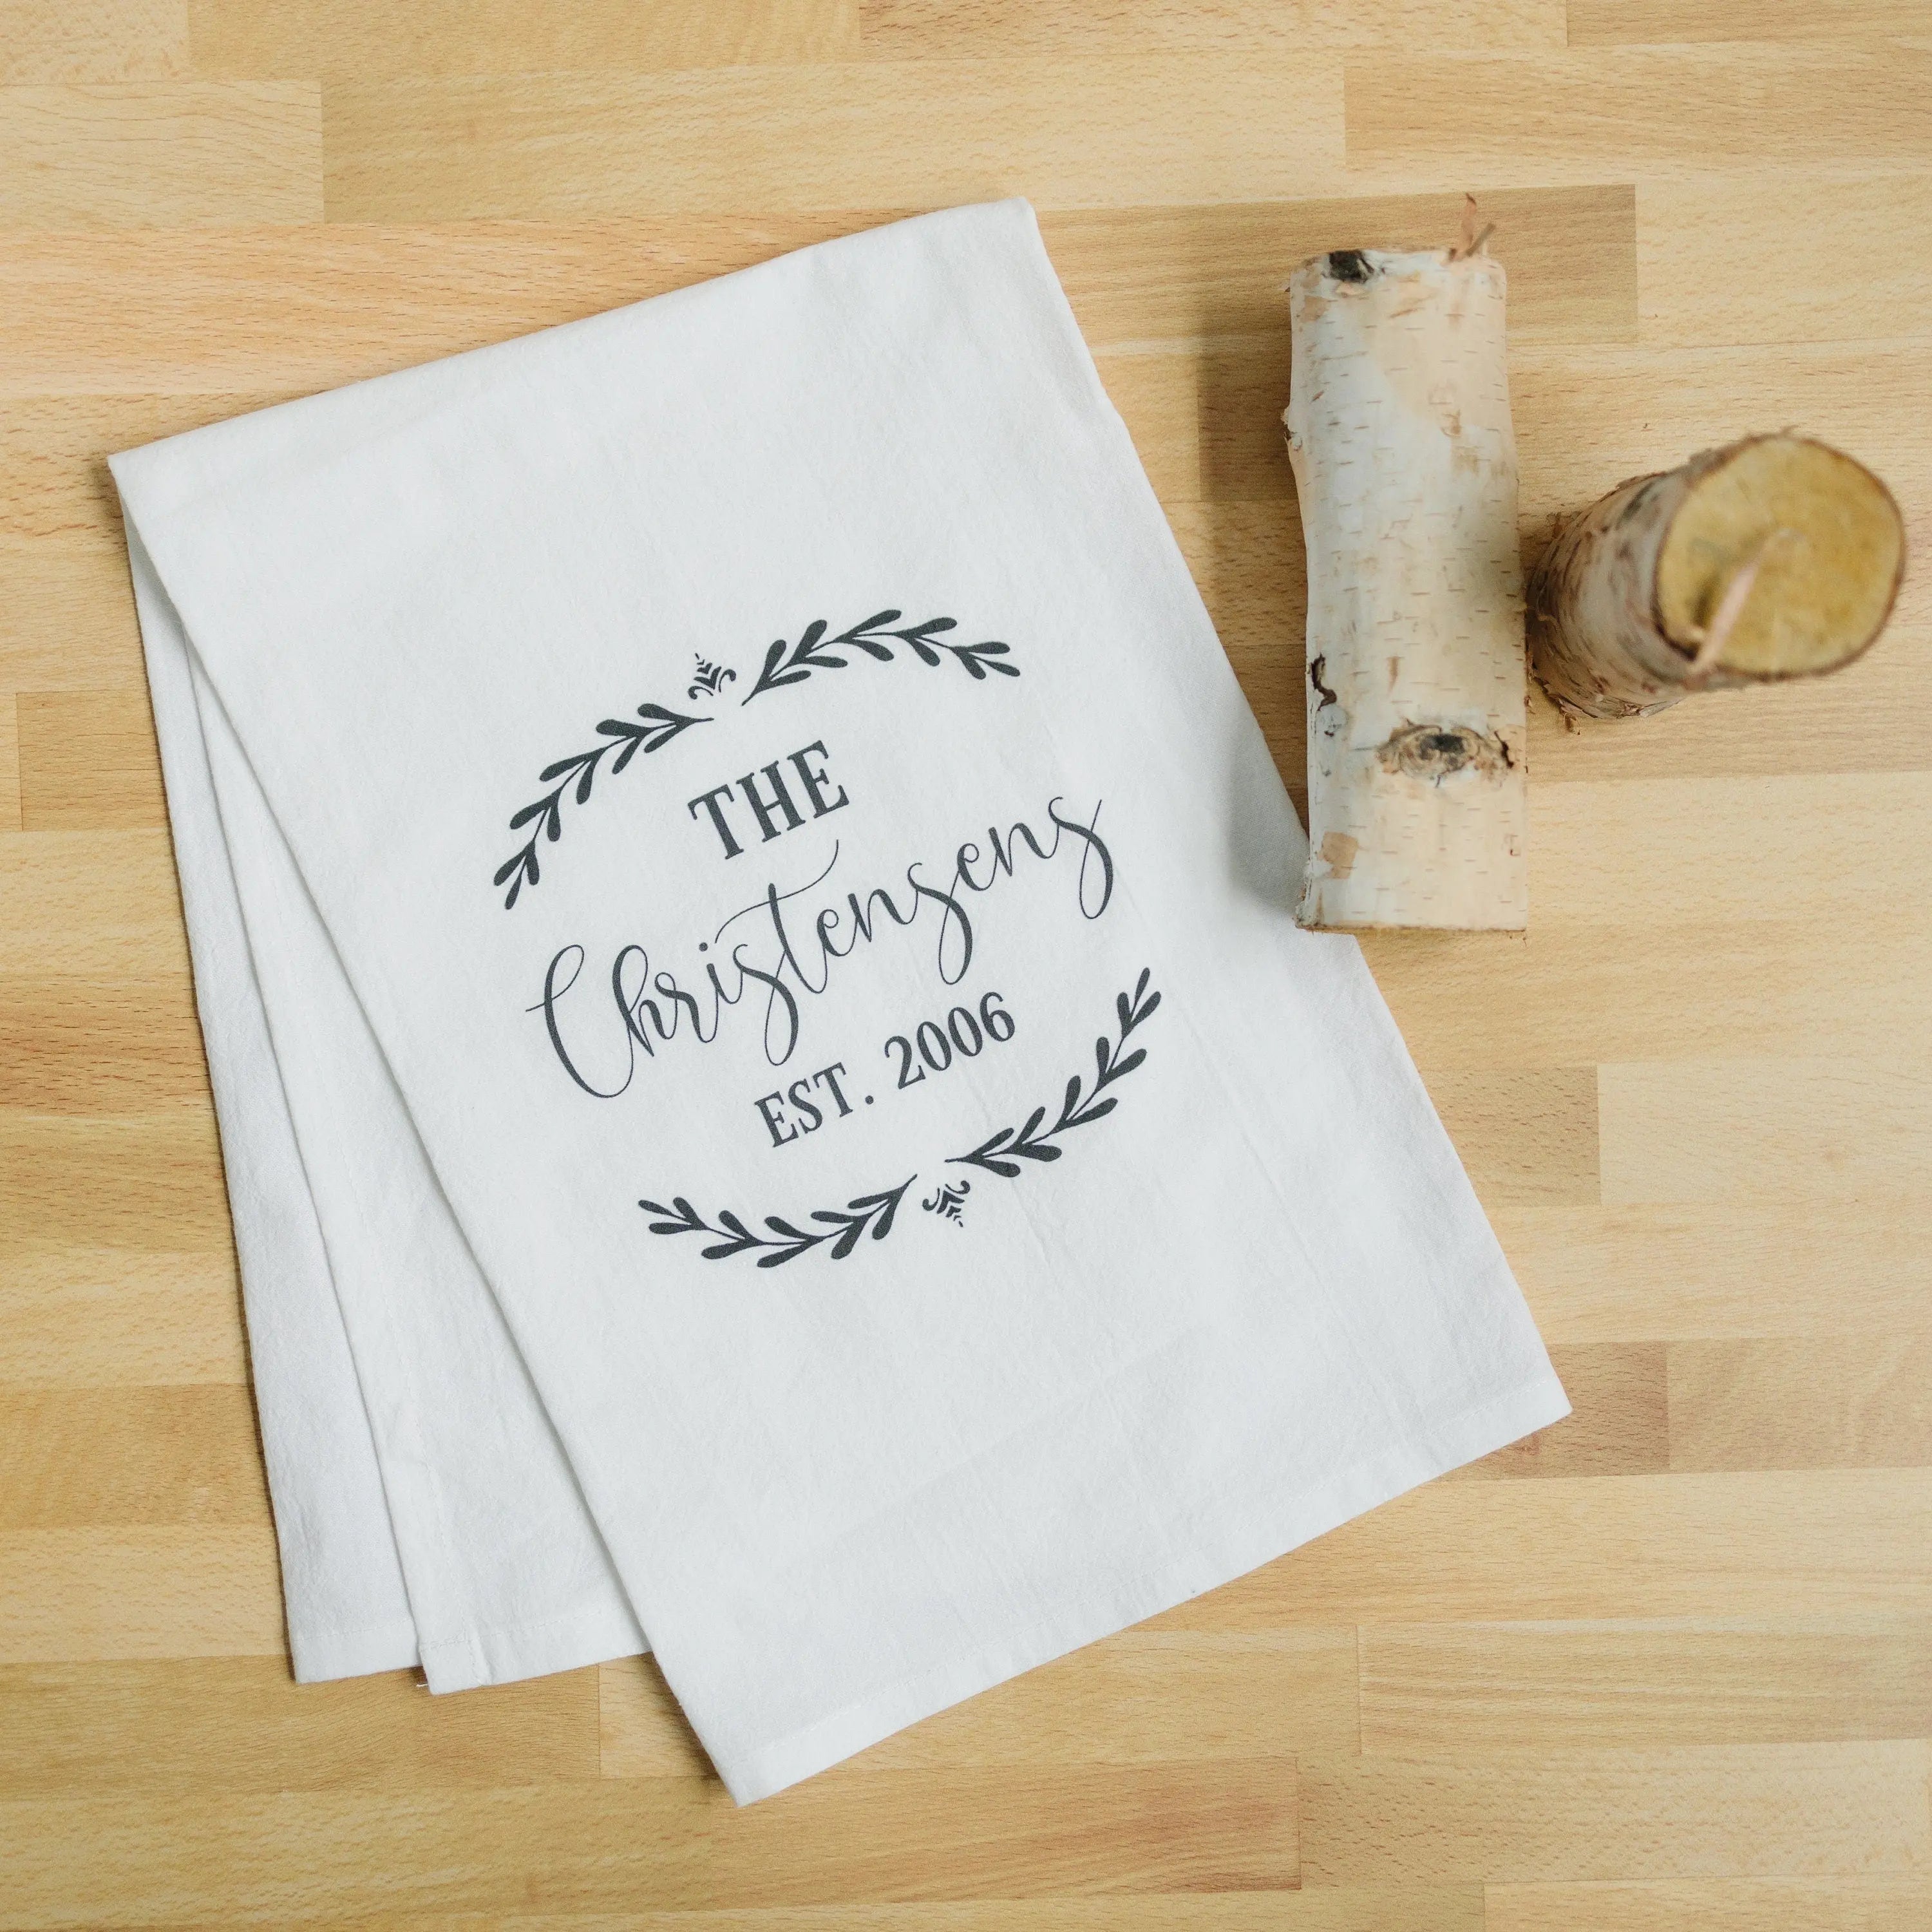 THE
Christensens
EST. 2006